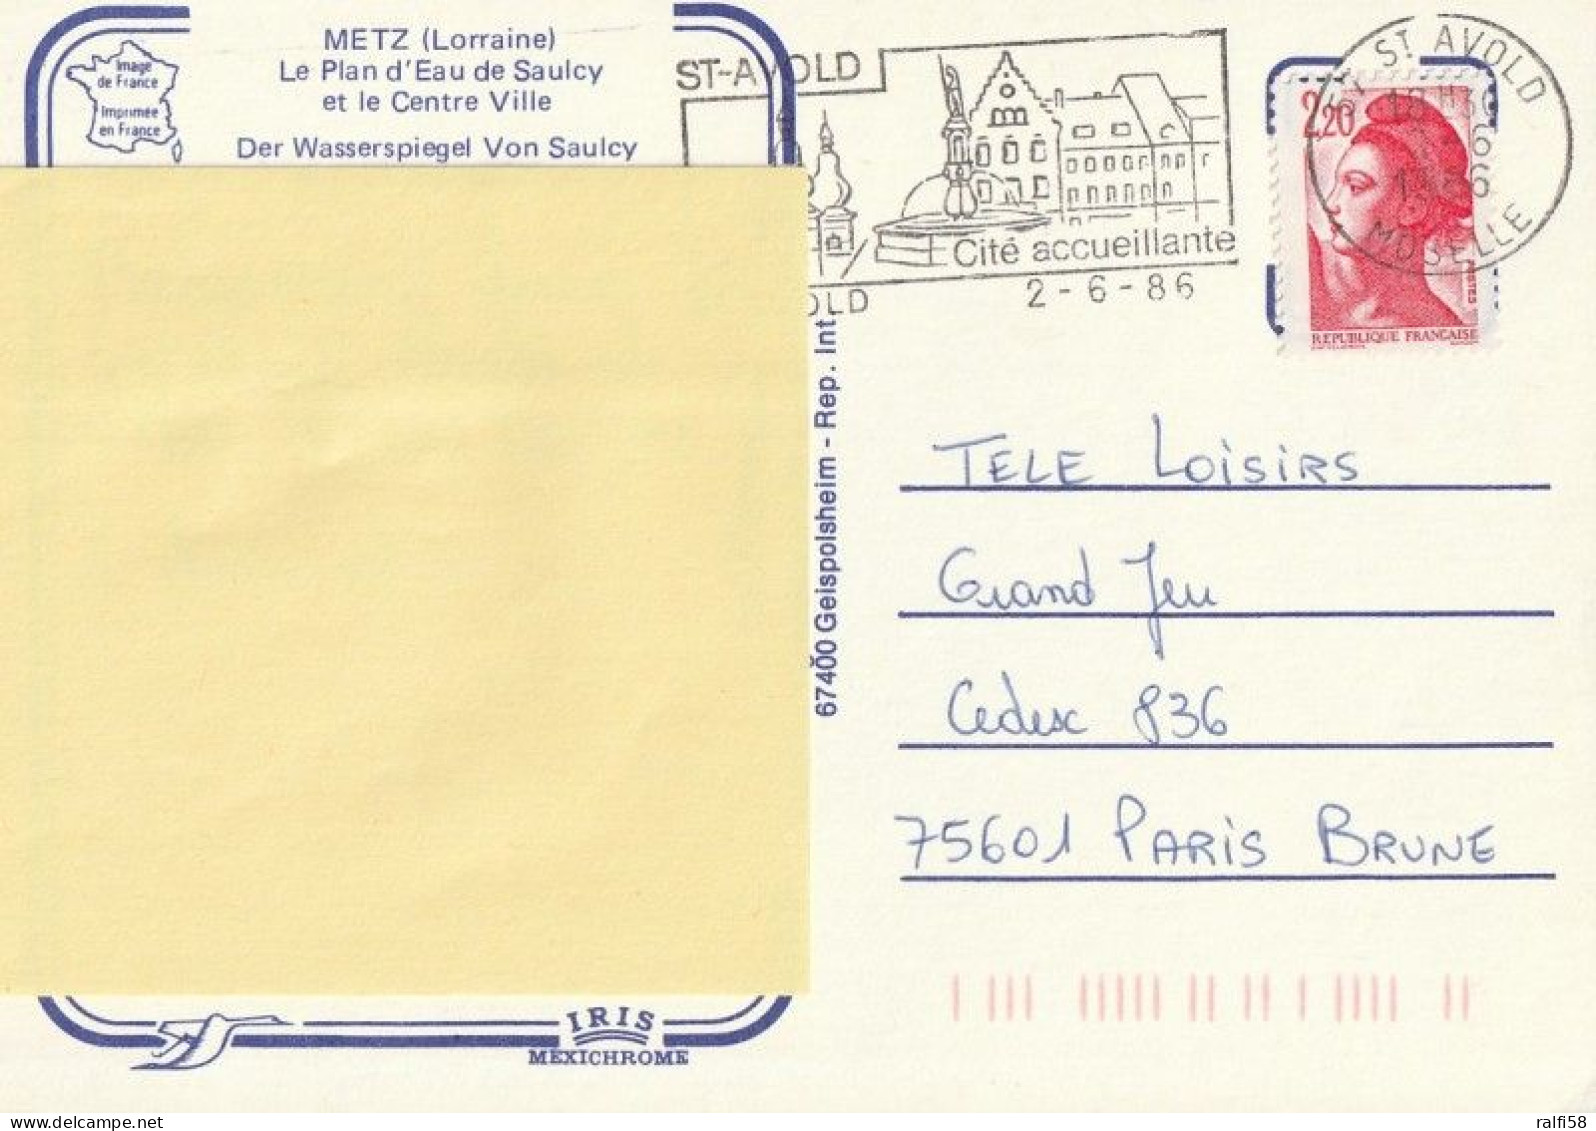 METZ (Lorraine)
Le Plan d'Eau de Saulcy
et le Centre Ville
Der Wasserspiegel Von Saulcy
Image
de France
Imprimée
en France
ST-AVOLD
Cité accueillante
2-6-86
OLD
ST AVOLD
MOSELLE
2,20
POSTES
REPUBLIQUE FRANCAISE
67400 Geispolsheim - Rep. Int.
TELE LOiSiRS
Grand Jeu
Cedex 836
75601 PARiS BRUNE
IRIS
MEXICHROME
ralfi58